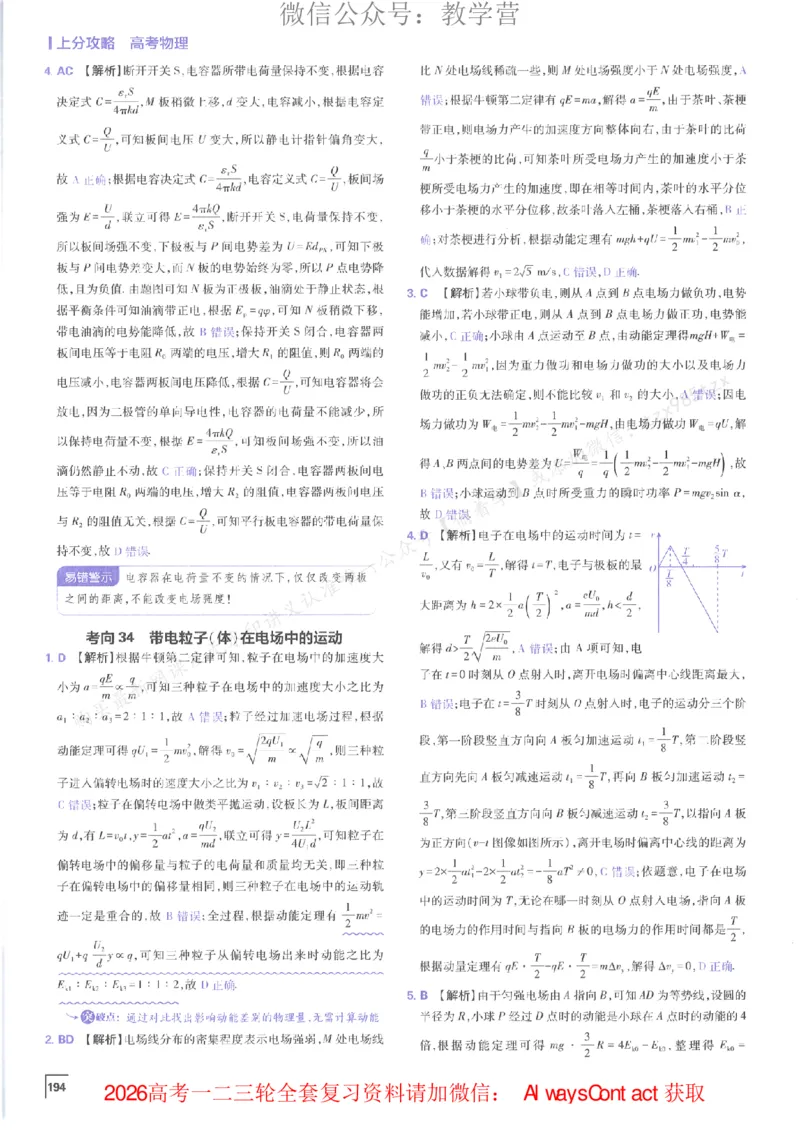 微信公众号：教学营
上分攻略 高考物理
4. AC 【解析】断开开关 S,电容器所带电荷量保持不变,根据电容
决定式 C=εrS/4πkd,M 板稍微上移,d 变大,电容减小,根据电容定
义式 C=Q/U,可知板间电压 U 变大,所以静电计指针偏角变大,
故 A 正确;根据电容决定式 C=εrS/4πkd,电容定义式 C=Q/U,板间场
强为 E=U/d,联立可得 E=4πkQ/εrS,断开开关 S,电荷量保持不变,
所以板间场强不变,下极板与 P 间电势差为 U=EdPN,可知下极
板与 P 间电势差变大,而 N 板的电势始终为零,所以 P 点电势降
低,且为负值.由题图可知 N 板为正极板,油滴处于静止状态,根
据平衡条件可知油滴带正电,根据 Ep=qφ,可知 N 板稍微下移,
带电油滴的电势能降低,故 B 错误;保持开关 S 闭合,电容器两
板间电压等于电阻 R0 两端的电压,增大 R1 的阻值,则 R0 两端的
电压减小,电容器两板间电压降低,根据 C=Q/U,可知电容器将会
放电,因为二极管的单向导电性,电容器的电荷量不能减少,所
以保持电荷量不变,根据 E=4πkQ/εrS,可知板间场强不变,所以油
滴仍然静止不动,故 C 正确;保持开关 S 闭合,电容器两板间电
压等于电阻 R0 两端的电压,增大 R2 的阻值,电容器两板间电压
与 R2 的阻值无关,根据 C=Q/U,可知平行板电容器的带电荷量保
持不变,故 D 错误.
易错警示 电容器在电荷量不变的情况下,仅仅改变两板
之间的距离,不能改变电场强度!
考向 34 带电粒子(体)在电场中的运动
1. D 【解析】根据牛顿第二定律可知,粒子在电场中的加速度大
小为 a=qE/m∝q/m,可知三种粒子在电场中的加速度大小之比为
a1:a2:a3=2:1:1,故 A 错误;粒子经过加速电场过程,根据
动能定理可得 qU1=1/2mv0²,解得 v0=√(2qU1/m)∝√(q/m),则三种粒
子进入偏转电场时的速度大小之比为 v1:v2:v3=√2:1:1,故
C 错误;粒子在偏转电场中做类平抛运动,设板长为 L,板间距离
为 d,有 L=v0t,y=1/2at²,a=qU2/md,联立可得 y=U2L²/4U1d,可知粒子在
偏转电场中的偏移量与粒子的电荷量和质量均无关,即三种粒
子在偏转电场中的偏移量相同,则三种粒子在电场中的运动轨
迹一定是重合的,故 B 错误;全过程,根据动能定理有 1/2mv²=
qU1+qU2/dy∝q,可知三种粒子从偏转电场出来时动能之比为
Ek1:Ek2:Ek3=1:1:2,故 D 正确.
突破点:通过对比找出影响动能差别的物理量,无需计算动能
2. BD 【解析】电场线分布的密集程度表示电场强弱,M 处电场线
比 N 处电场线稀疏一些,则 M 处电场强度小于 N 处电场强度,A
错误;根据牛顿第二定律有 qE=ma,解得 a=qE/m,由于茶叶、茶梗
带正电,则电场力产生的加速度方向整体向右,由于茶叶的比荷
q/m小于茶梗的比荷,可知茶叶所受电场力产生的加速度小于茶
梗所受电场力产生的加速度,即在相等时间内,茶叶的水平分位
移小于茶梗的水平分位移,故茶叶落入左桶,茶梗落入右桶,B 正
确;对茶梗进行分析,根据动能定理有 mgh+qU=1/2mv1²-1/2mv0²,
代入数据解得 v1=2√5 m/s,C 错误,D 正确.
3. C 【解析】若小球带负电,则从 A 点到 B 点电场力做负功,电势
能增加,若小球带正电,则从 A 点到 B 点电场力做正功,电势能
减小,C 正确;小球由 A 点运动至 B 点,由动能定理得mgH+W电=
1/2mv2²-1/2mv1²,因为重力做功和电场力做功的大小以及电场力
做功的正负无法确定,则不能比较 v1 和 v2 的大小,A 错误;因电
场力做功为 W电=1/2mv2²-1/2mv1²-mgH,由电场力做功 W电=qU,解
得 A、B 两点间的电势差为 U=W电/q=1/q(1/2mv2²-1/2mv1²-mgH),故
B 错误;小球运动到 B 点时所受重力的瞬时功率 P=mgv2sin α,
故 D 错误.
4. D 【解析】电子在电场中的运动时间为 t=
L/v0,又有 v0=L/T,解得 t=T,电子与极板的最
大距离为 h=2×1/2a(T/2)²,a=eU0/md,h<d/2,
解得 d>T/2√(2eU0/m),A 错误;由 A 项可知,电
v
O
T/8
T/4
5/8T
t
子在 t=0 时刻从 O 点射入时,离开电场时偏离中心线距离最大,
B 错误;电子在 t=3/8T 时刻从 O 点射入时,电子的运动分三个阶
段,第一阶段竖直方向向 A 板匀加速运动 t1=1/8T,第二阶段竖
直方向先向 A 板匀减速运动 t1=1/8T,再向 B 板匀加速运动 t2=
3/8T,第三阶段竖直方向向 B 板匀减速运动 t2=3/8T,以指向 A 板
为正方向(v-t 图像如图所示),离开电场时偏离中心线的距离为
y=2×1/2at1²-2×1/2at2²=-1/8aT²≠0,C 错误;依题意,电子在电场
中的运动时间为 T,无论在哪一时刻从 O 点射入电场,指向 A 板
的电场力的作用时间与指向 B 板的电场力的作用时间都是T/2,
根据动量定理有 qE·T/2-qE·T/2=mΔvy,解得 Δvy=0,D 正确.
5. B 【解析】由于匀强电场由 A 指向 B,可知 AD 为等势线,设圆的
半径为 R,小球 P 经过 D 点时的动能是小球在 A 点时的动能的 4
倍,根据动能定理可得 mg·3/2R=4Ek0-Ek0,整理得 Ek0=
194
2026高考一二三轮全套复习资料请加微信： AlwaysContact 获取